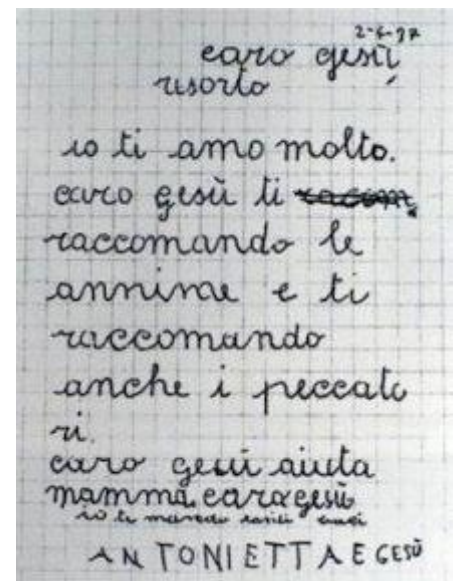 2-6-97
caro gesù
risorto
io ti amo molto.
caro gesù ti racom
raccomando le
annime e ti
raccomando
anche i peccato
ri.
caro gesù aiuta
mamma. caro gesù
io ti mando tanti baci
ANTONIETTA E GESÙ